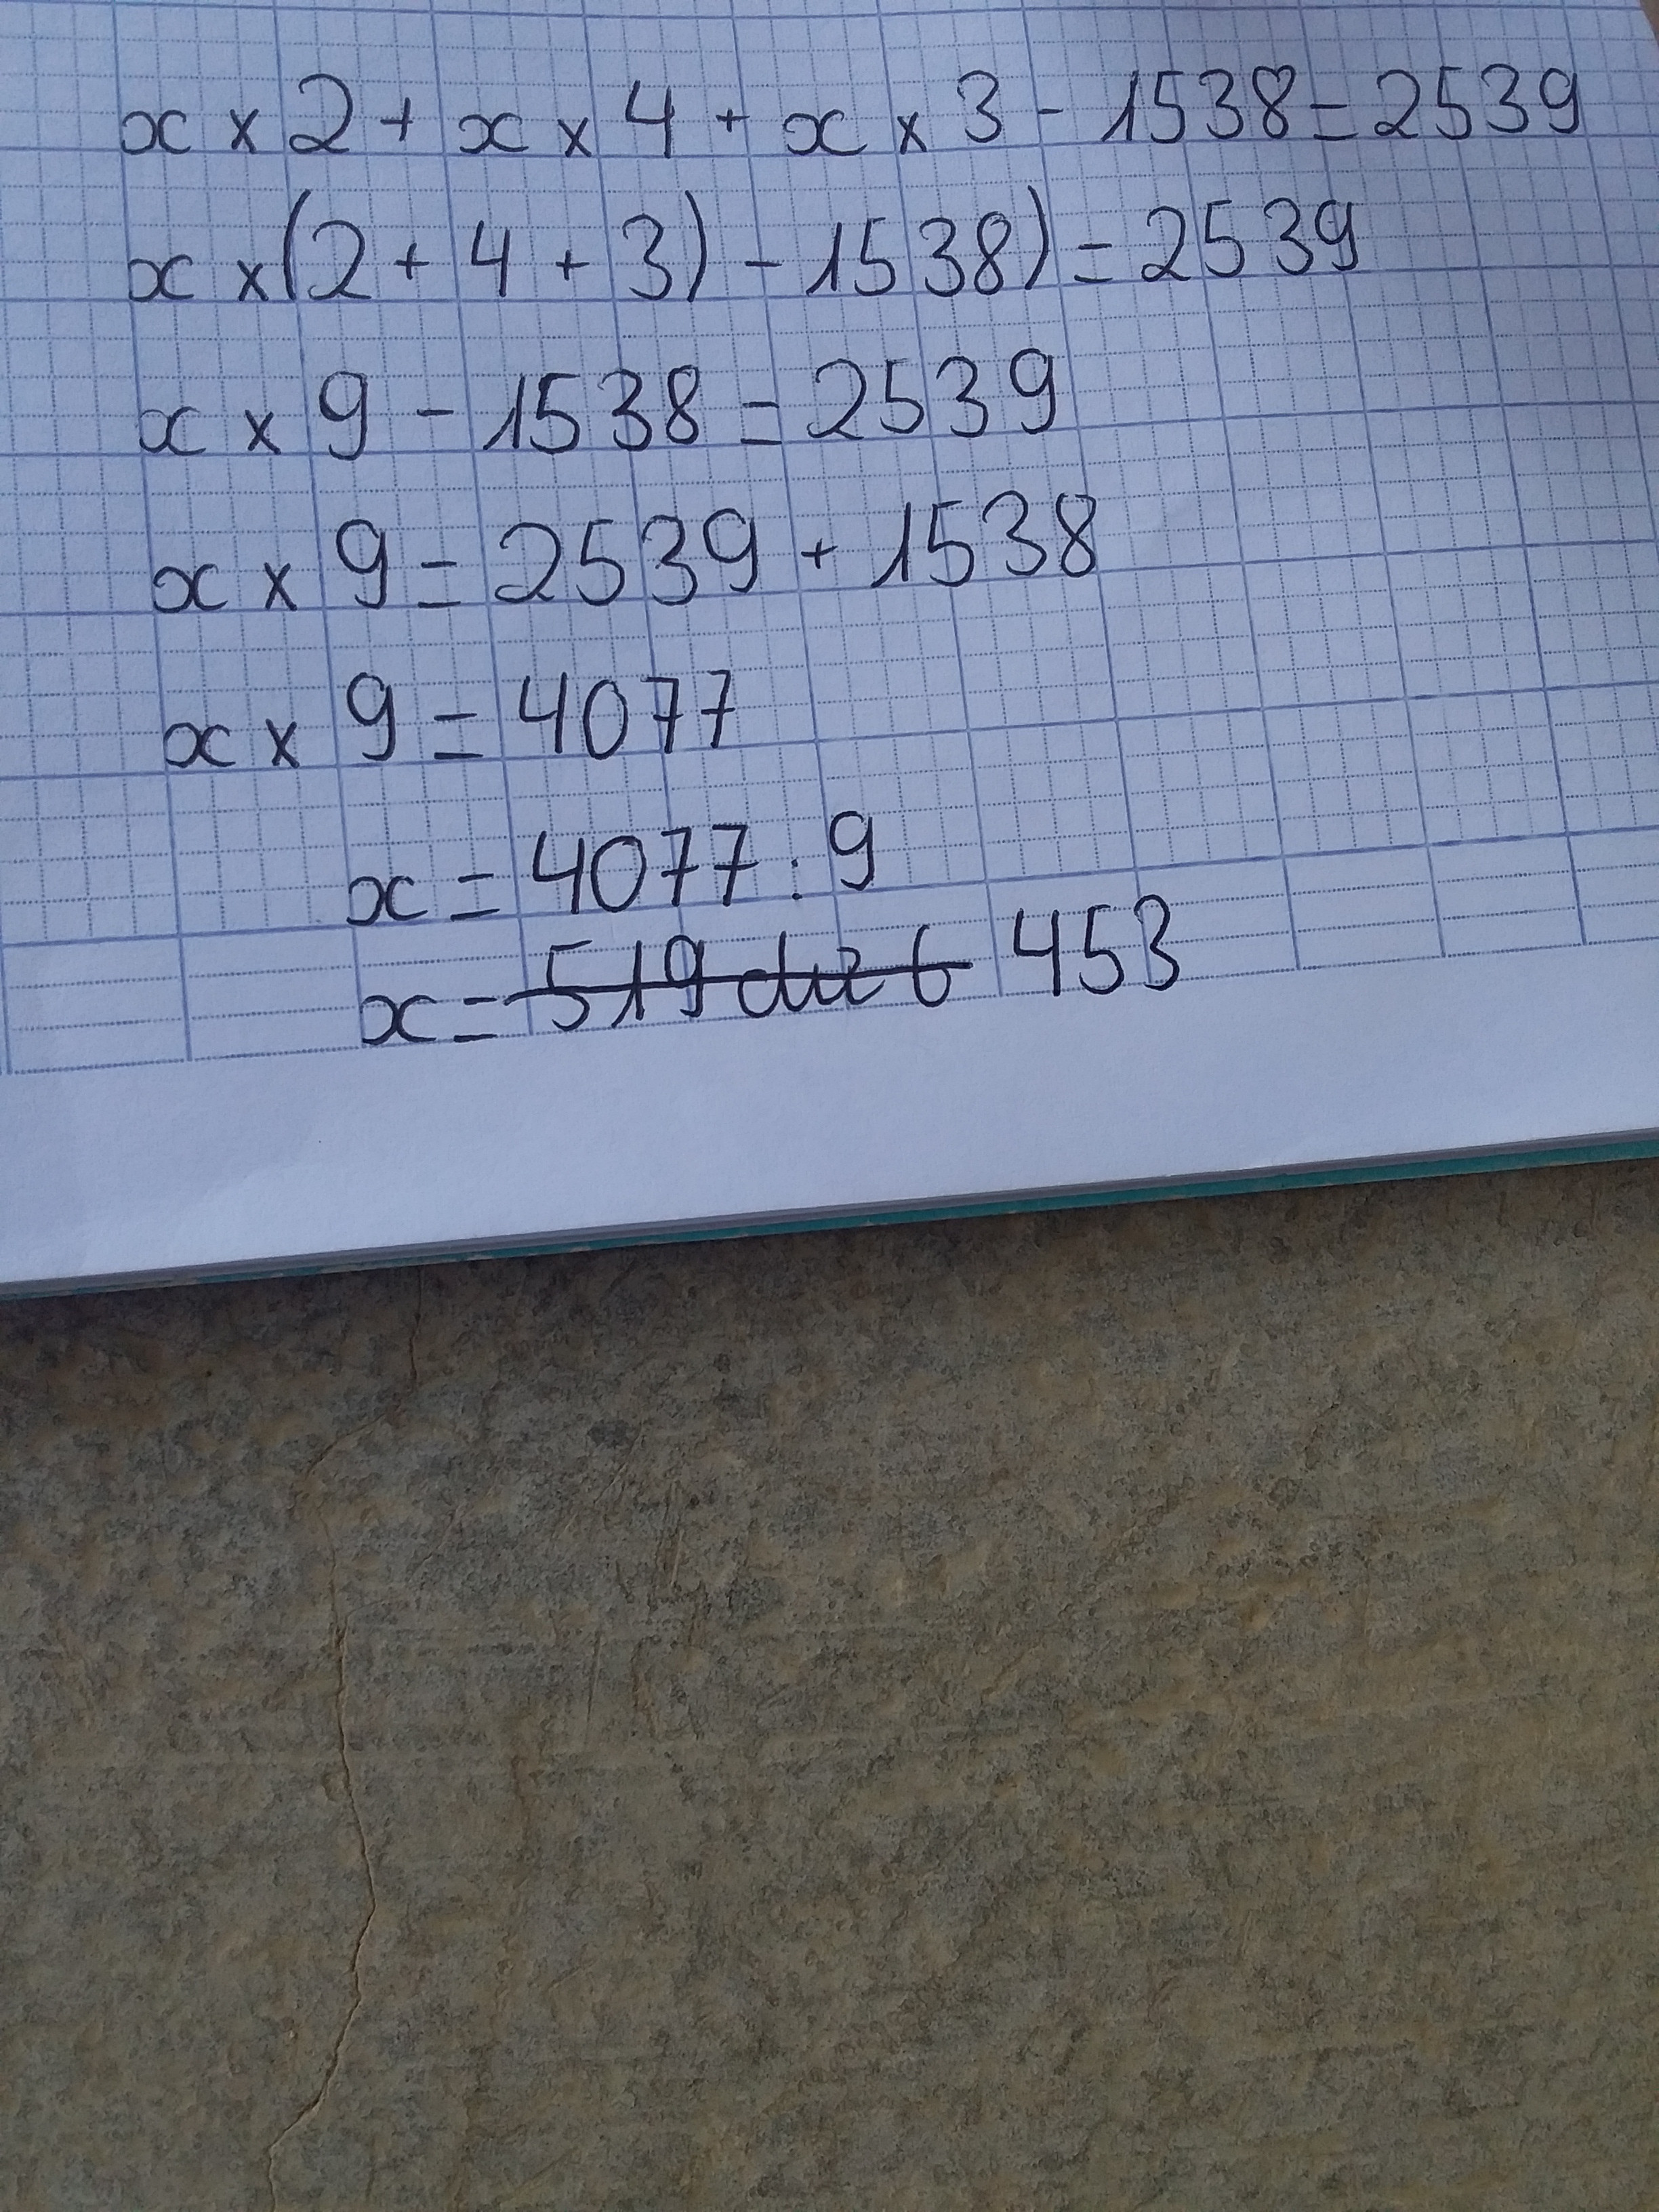 x × 2 + x × 4 + x × 3 - 1538 = 2539
x × (2 + 4 + 3) - 1538) = 2539
x × 9 - 1538 = 2539
x × 9 = 2539 + 1538
x × 9 = 4077
x = 4077 : 9
x = 519 453